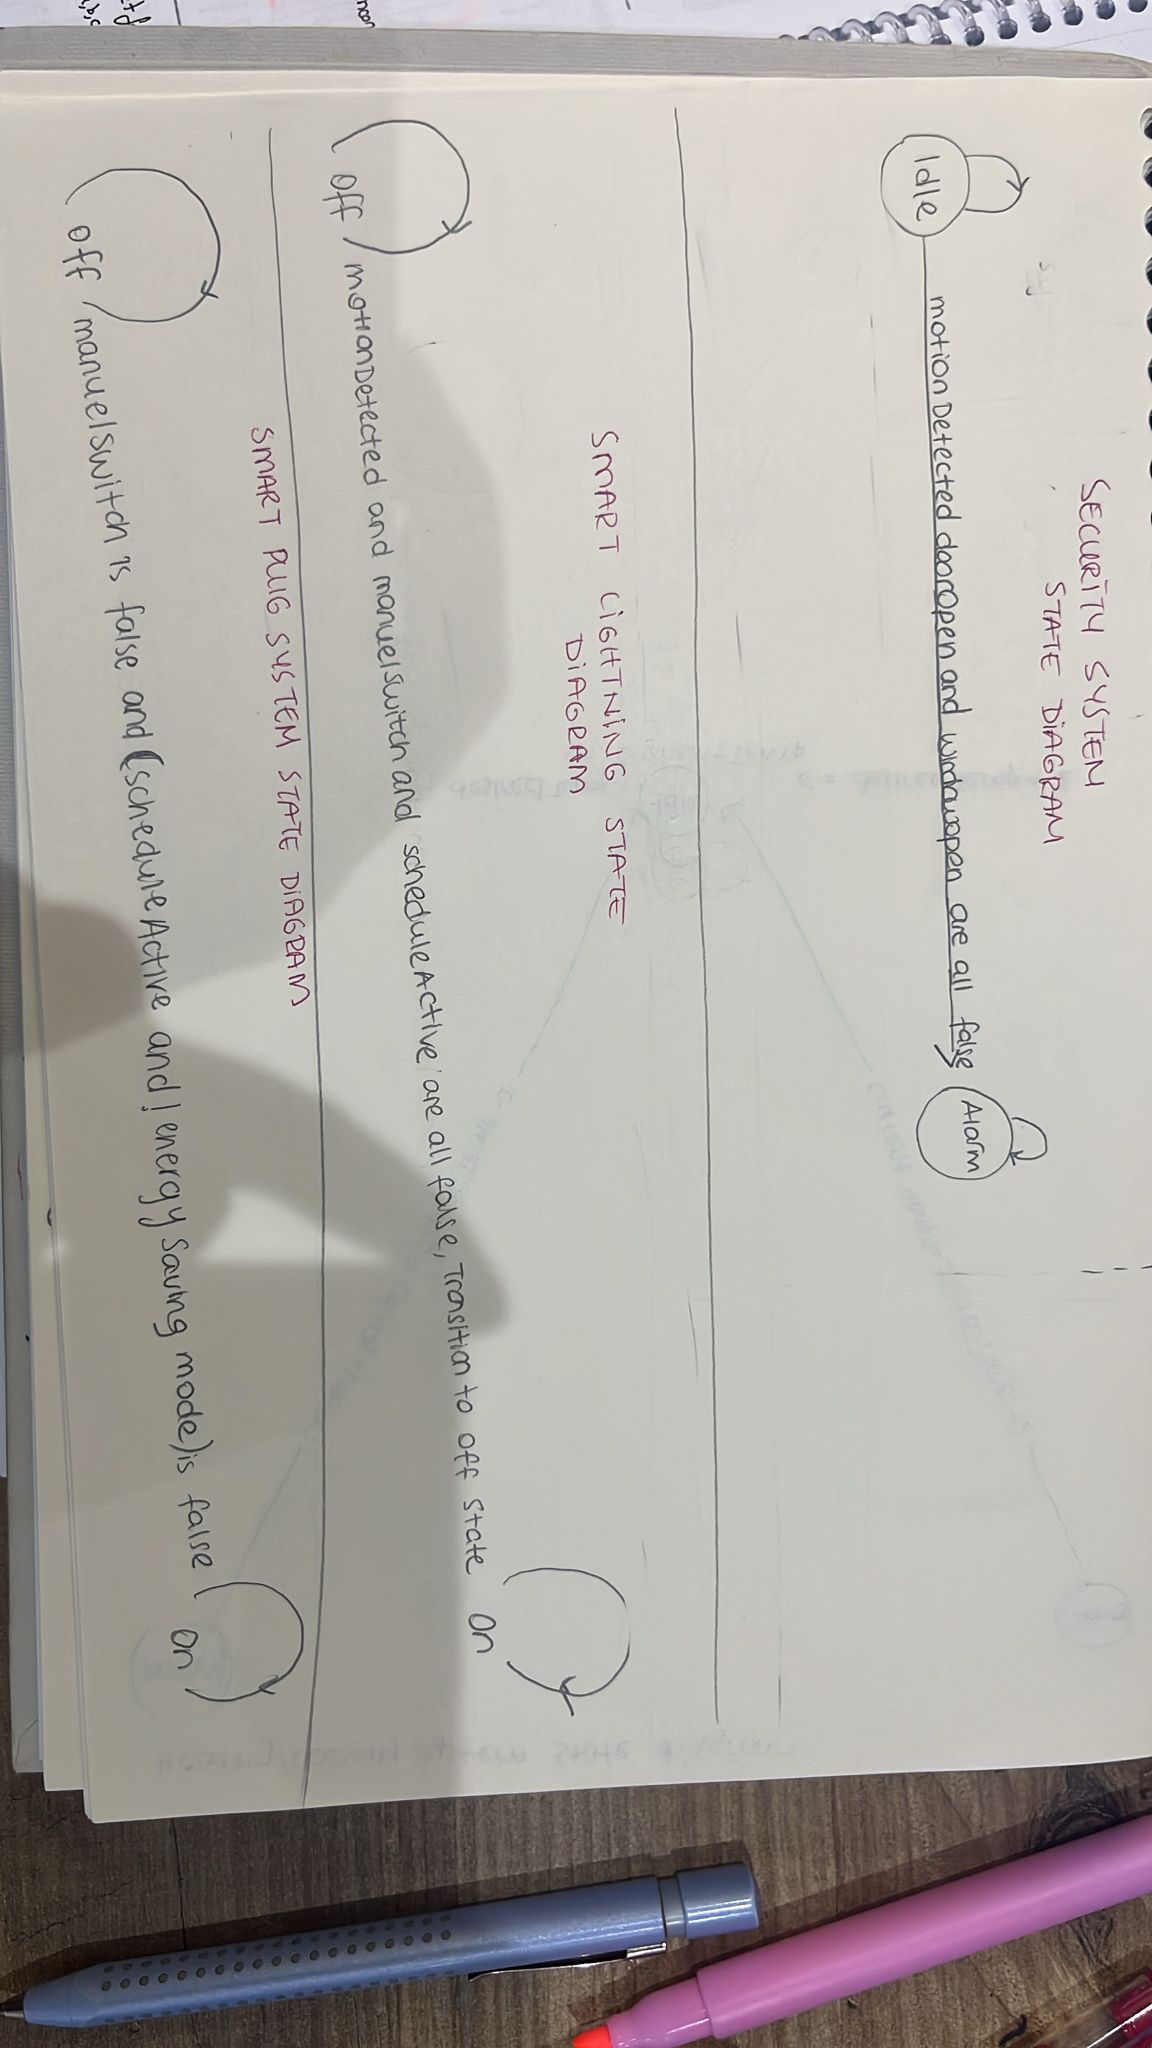 SECURİTY SYSTEM
STATE DİAGRAM
Idle motionDetected dooropen and windowopen are all false Alarm
SMART LİGHTNİNG STATE
DİAGRAM
off motionDetected and manuelswitch and scheduleActive are all false, Transition to off state On
SMART PLUG SYSTEM STATE DİAGRAM
off manuelswitch is false and (scheduleActive and ! energy Saving mode) is false On